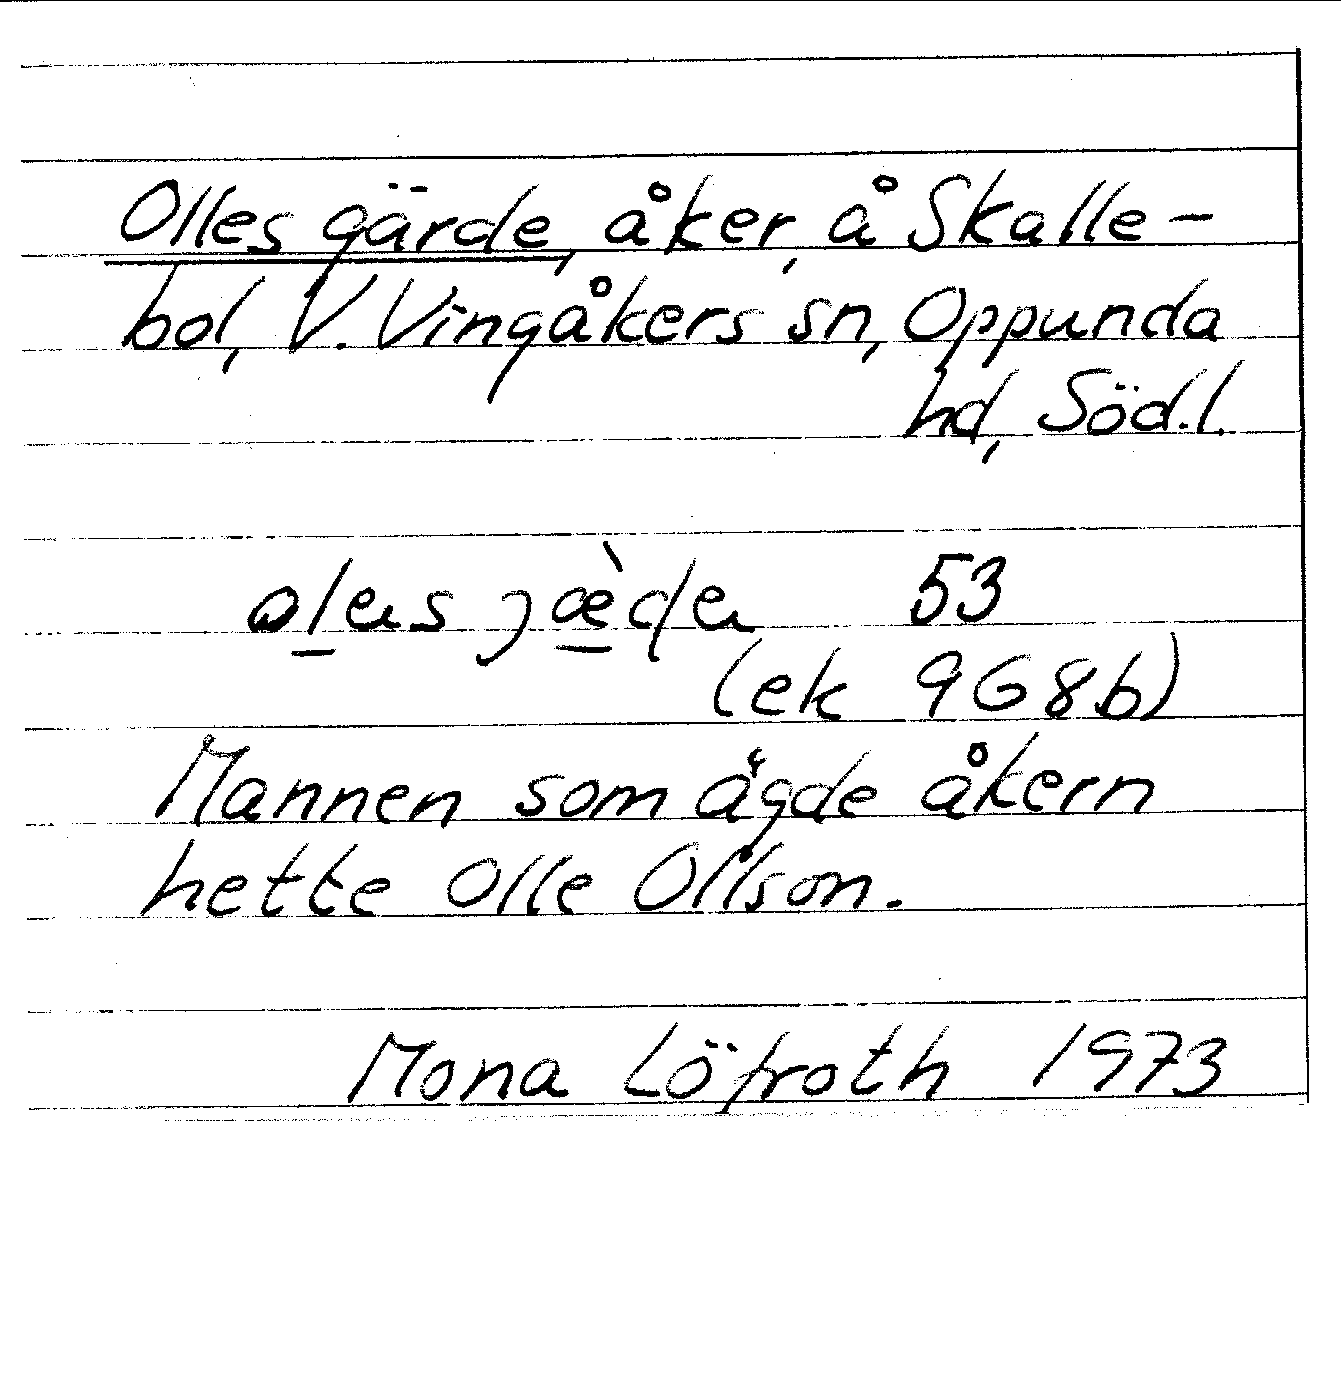 Olles gärde, åker, å Skalle-
bol, V. Vingåkers sn, Oppunda
hd, Söd.l.
53
(ek 9G8b)
Mannen som ägde åkern
hette Olle Ollson.
Mona Löfroth 1973